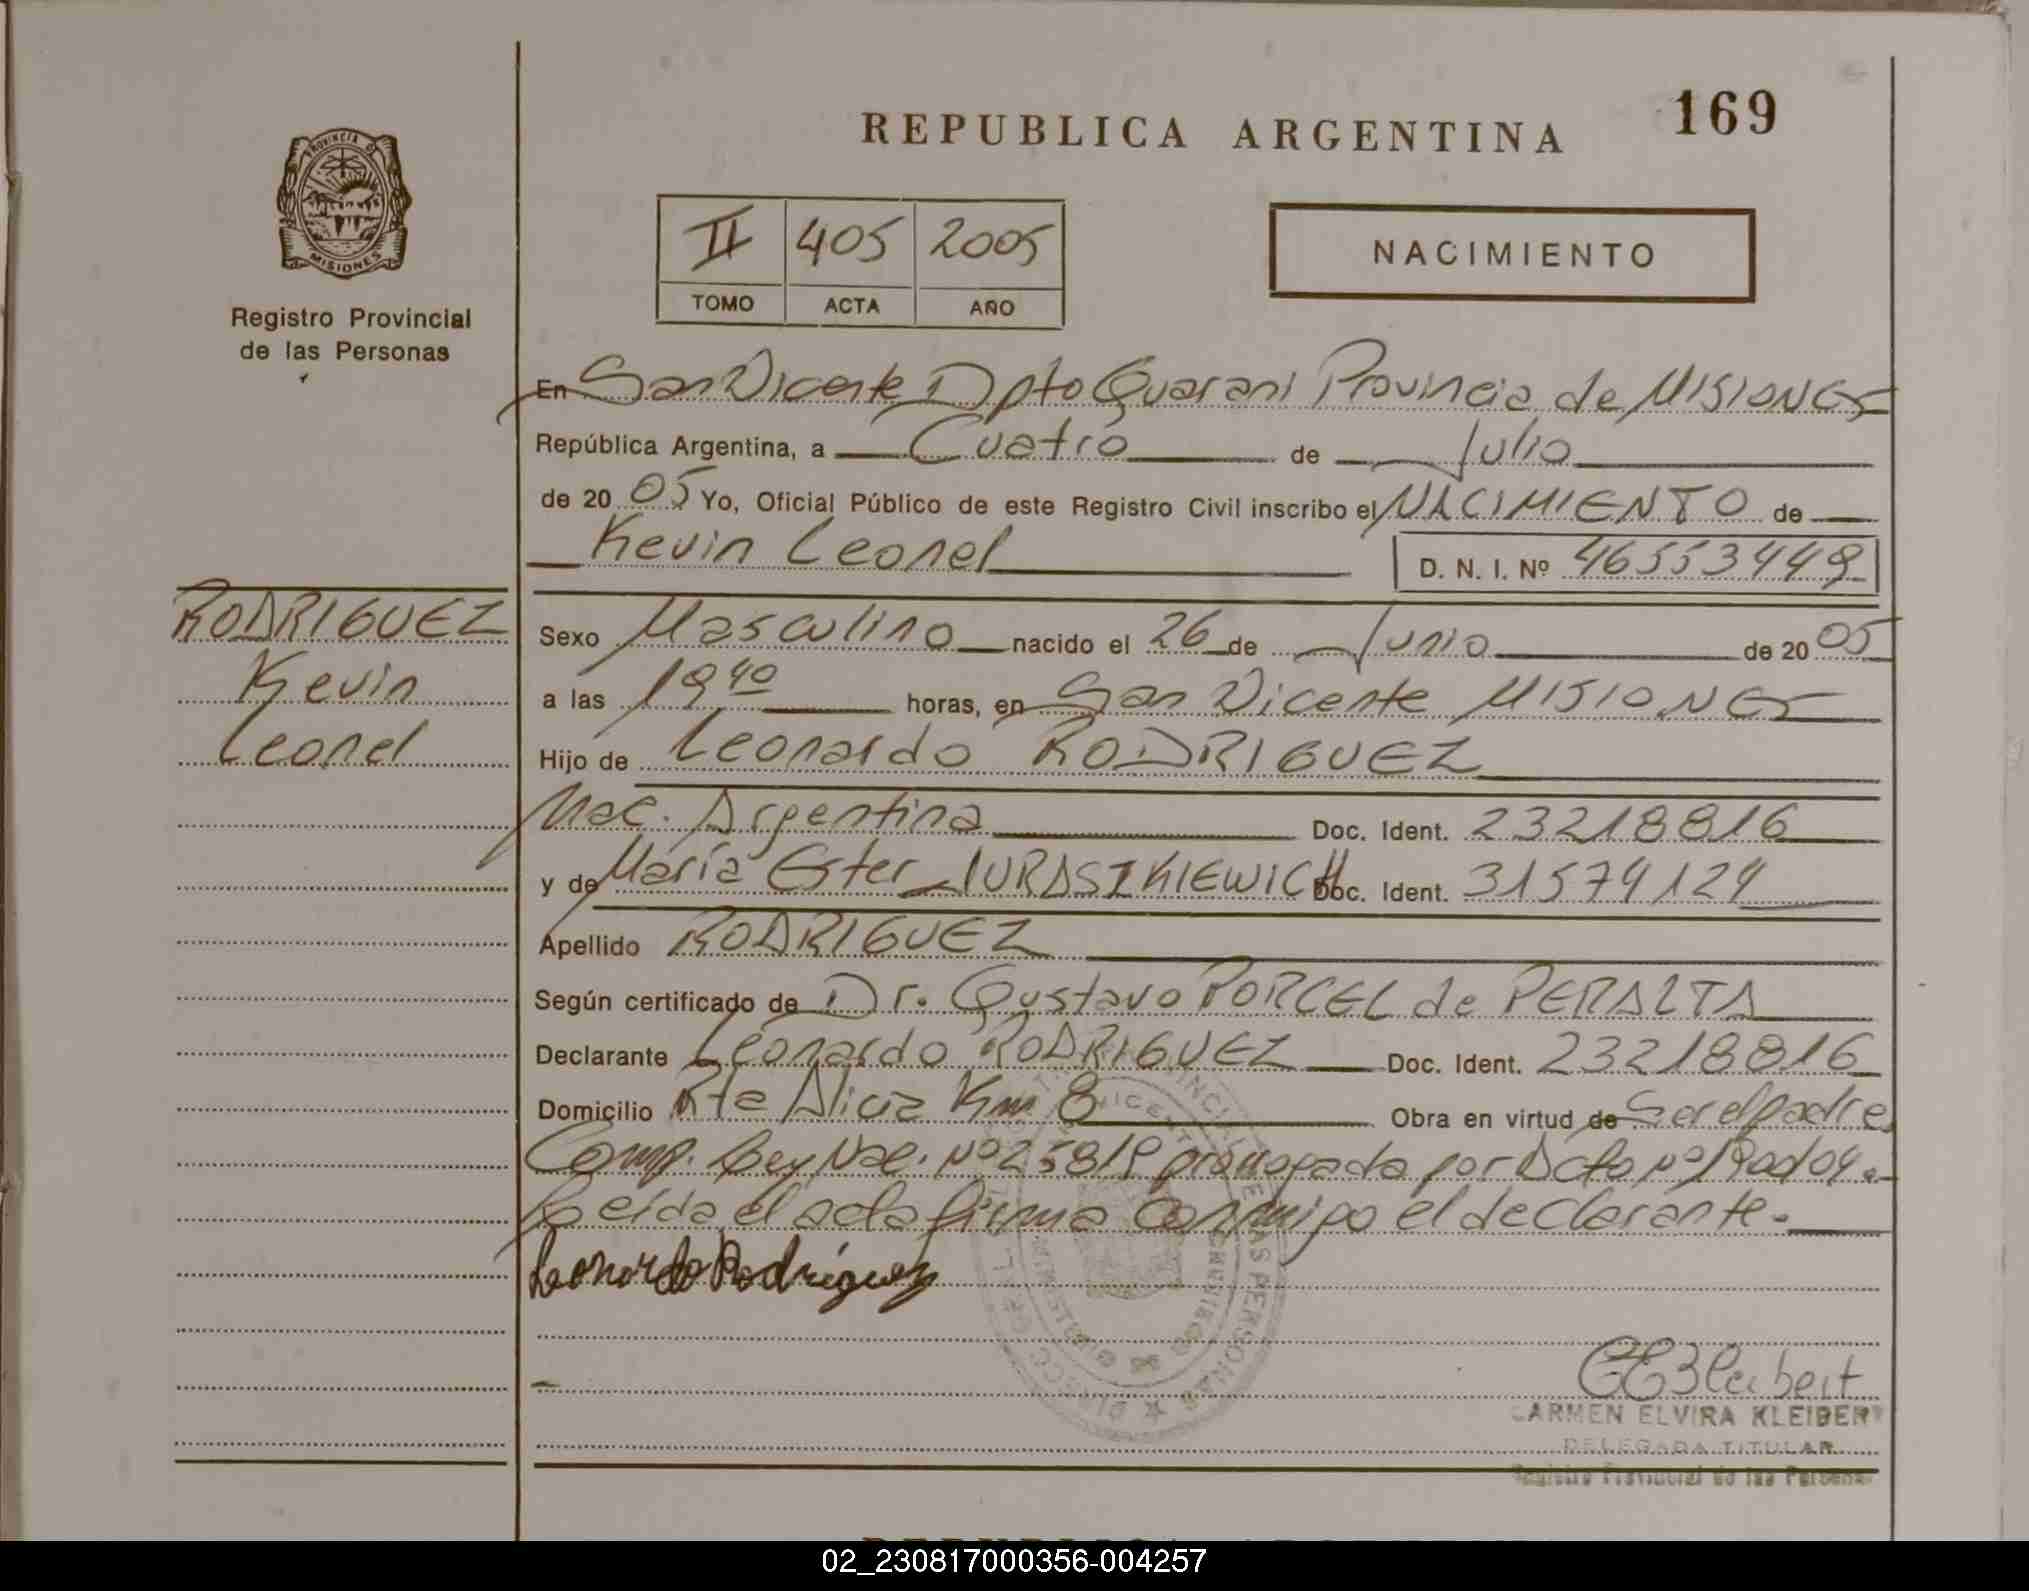 169
REPUBLICA ARGENTINA
PROVINCIA D
MISIONES
Registro Provincial
de las Personas
II 405 2005
TOMO ACTA AÑO
NACIMIENTO
En San Vicente Dpto Guarani Provincia de MISIONES
República Argentina, a Cuatro de Julio
de 20 05 Yo, Oficial Público de este Registro Civil inscribo el NACIMIENTO de
Kevin Leonel D. N. I. Nº 46553449
RODRIGUEZ
Kevin
Leonel
Sexo Masculino nacido el 26 de Junio de 20 05
a las 19 40 horas, en San Vicente MISIONES
Hijo de Leonardo RODRIGUEZ
Nac. Argentina Doc. Ident. 23218816
y de María Ester IURASZKIEWICH Doc. Ident. 31574124
Apellido RODRIGUEZ
Según certificado de Dr. Gustavo PORCEL de PERALTA
Declarante Leonardo RODRIGUEZ Doc. Ident. 23218816
Domicilio Rta Alicia Km 8 Obra en virtud de Ser el padre
Comp. Ley Nac. Nº 25819 prorrogada por Dcto Nº
Leída el acta firma conmigo el declarante.
Leonardo Rodríguez
CEKleibert
CARMEN ELVIRA KLEIBERT
DELEGADA TITULAR
Registro Provincial de las Personas
02_230817000356-004257